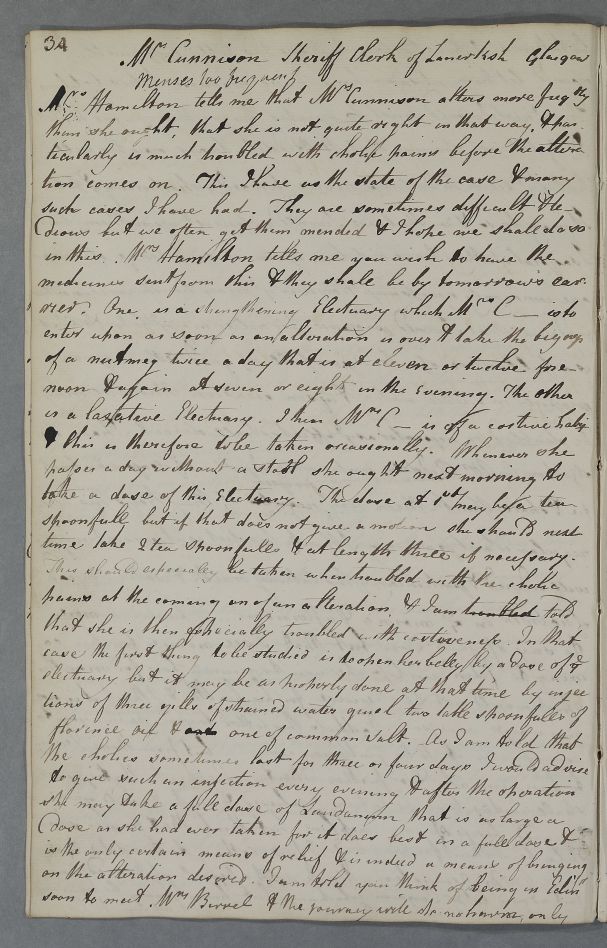 34
Mr Cunnison Sheriff Clerk of Lanerksh Glasgow
Menses too frequent
Mrs Hamilton tells me that Mrs Cunnison alters more freq tly
than she ought, that she is not quite right in that way, & par
ticularly is much troubled with cholic pains before the altera
tion comes on. This I have as the state of the case & many
such cases I have had. They are sometimes difficult & te
dious but we often get them mended & I hope we shall do so
in this. Mrs Hamilton tells me you wish to have the
medicines sent from this & they shall be by tomorrow's car
rier. One is a strengthening Electuary which Mrs C— is to
enter upon as soon as an alteration is over & take the bigness
of a nutmeg twice a day that is at eleven or twelve fore
noon & again at seven or eight in the Evening. The other
is a laxative Electuary. I hear Mrs C— is of a costive habit
& this is therefore to be taken occasionally. Whenever she
passes a day without a stool she ought next morning to
take a dose of this Electuary. The dose at 1st may be a tea
spoonfull but if that does not give a motion she should next
time take 2 tea spoonfulls & at length three if necessary.
This should especially be taken when troubled with the cholic
pains at the coming on of an alteration & I am troubled told
that she is then especially troubled with costiveness. In that
case the first thing to be studied is to open her belly by a dose of ye
electuary but it may be as properly done at that time by injec
tions of three gills of strained water gruel two table spoonfulls of
florence oil & one of common salt. As I am told that
the cholics sometimes last for three or four days I would advise
to give such an injection every evening & after the operation
she may take a full dose of Laudanum that is as large a
dose as she had ever taken for it does best in a full dose &
is the only certain means of relief & is indeed a means of bringing
on the alteration desired. I am told you think of being in Edinr
soon to meet Mrs Birrel & the journey will do no harm, only